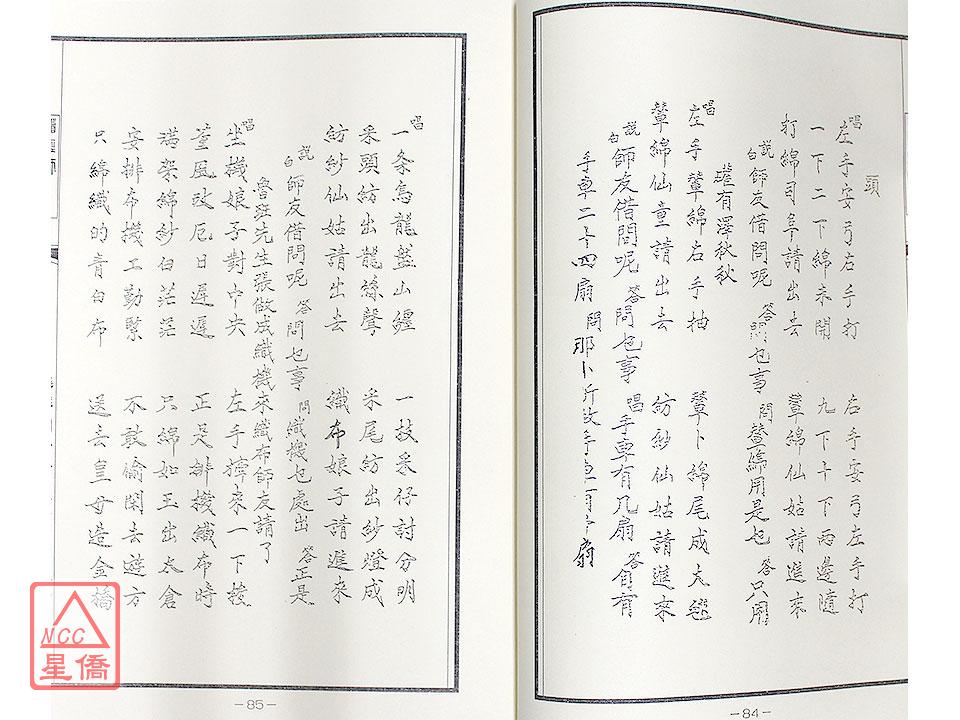 頭
唱 左手安弓右手打 右手安弓左手打
一下二下綿未開 九下十下兩邊隨
打綿司阜請出去 輦綿仙姑請進來
說白 師友借問呢 答 問乜事 問 輦綿用是乜 答 只用
有澤秋秋
唱 左手輦綿右手抽 輦卜綿尾成大毬
輦綿仙童請出去 紡紗仙姑請進來
說白 師友借問呢 答 問乜事 唱 手車有几扇 答 負有
手車二十四扇 問 那卜
-84-
唱 一条烏龍盤山纏 一技采仔討分明
采頭紡出龍絲聲 采尾紡出紗燈成
紡紗仙姑請出去 織布娘子請進來
說白 師友借問呢 答 問乜事 問 織機乜處出 答 正是
魯班先生張做成織機來織布師友請了
唱 坐機娘子對中央 左手擲來一下接
董風改厄日遲遲 正是排機織布時
滿架綿紗白茫茫 只綿如玉出太倉
安排布機工勤緊 不敢偷閑去遊方
只綿織的青白布 送去皇母造金橋
-85-
NCC
星僑